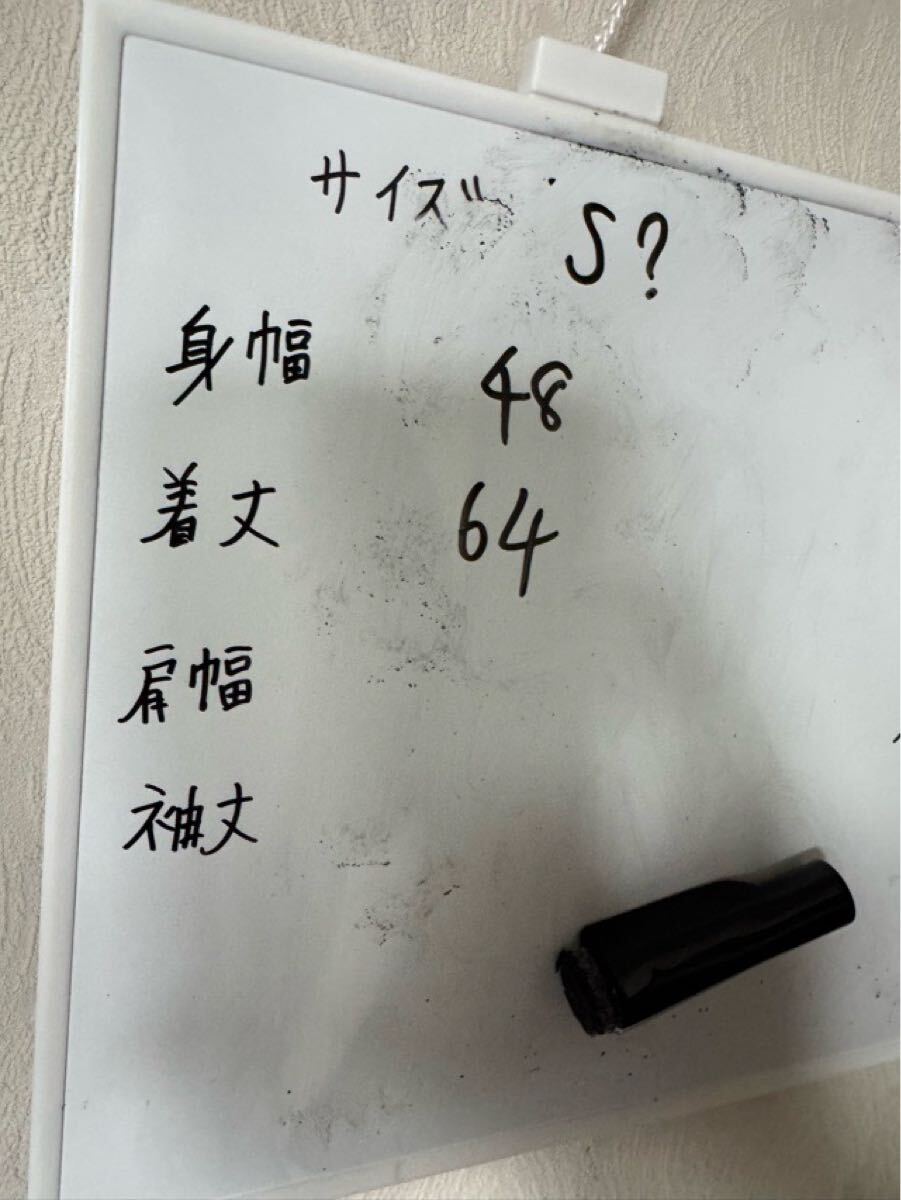 サイズ S?
身幅 48
着丈 64
肩幅
袖丈